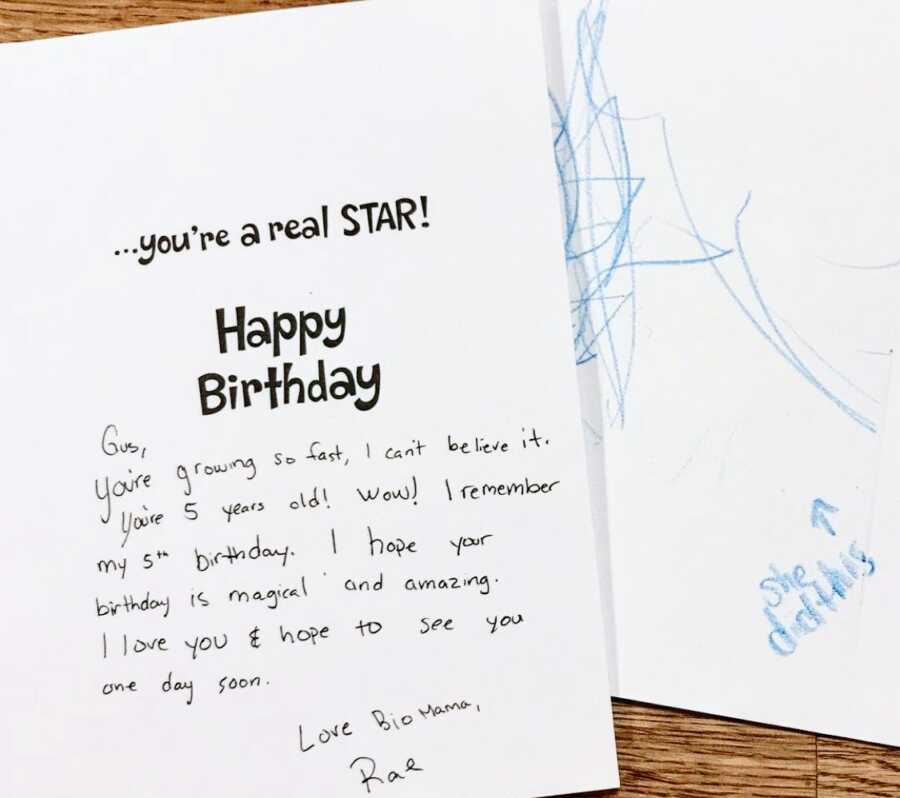 ...you're a real STAR!
Happy
Birthday
Gus,
You're growing so fast, I can't believe it.
You're 5 years old! Wow! I remember
my 5th birthday. I hope your
birthday is magical and amazing.
I love you & hope to see you
one day soon.
Love Bio Mama,
Rae
she
did this